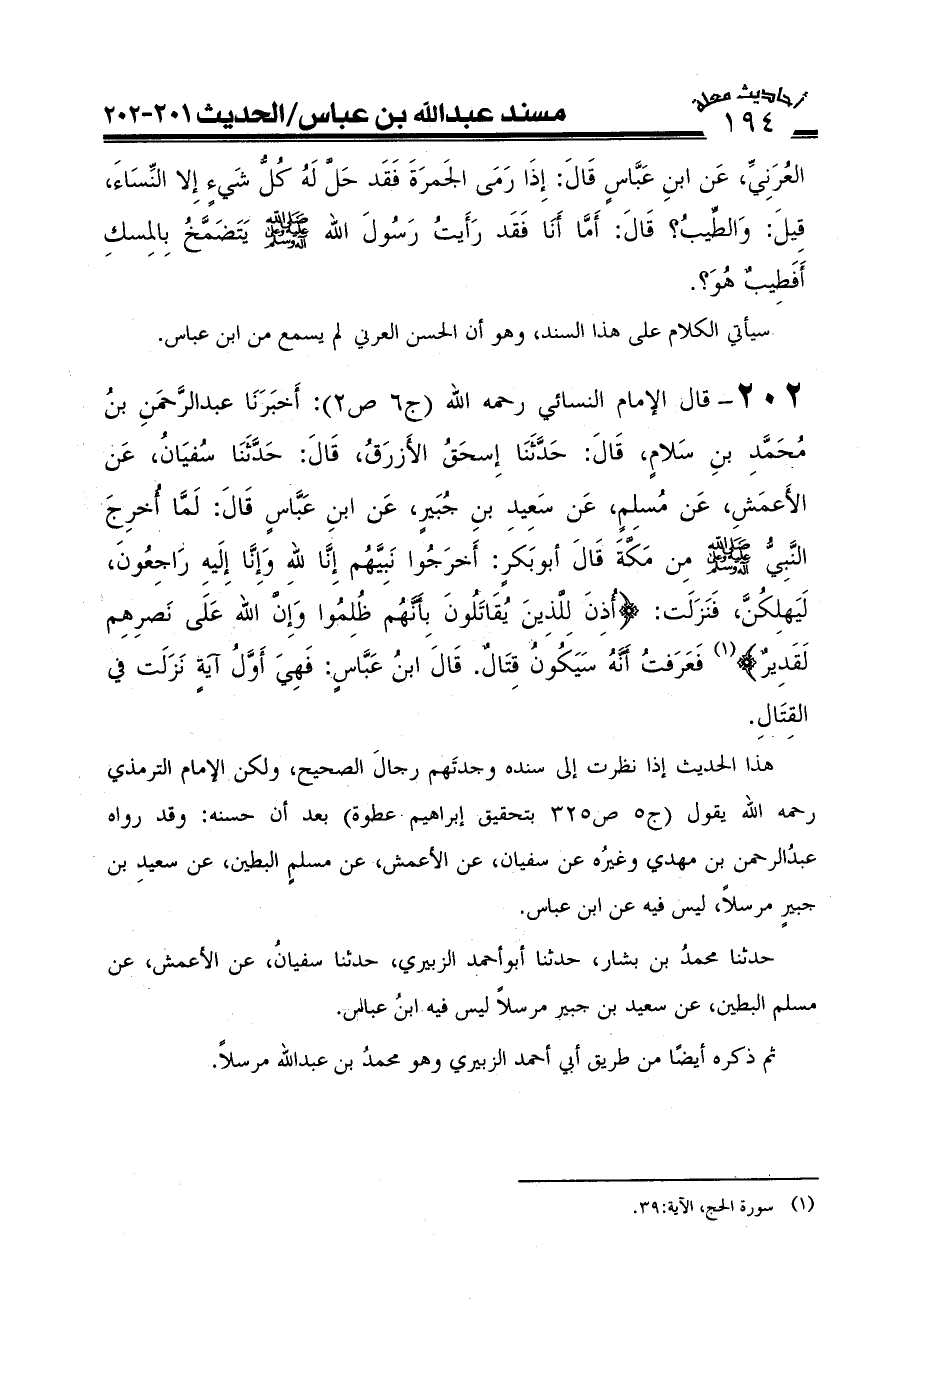 أحاديث معلة
١٩٤
مسند عبدالله بن عباس/الحديث ٢٠١-٢٠٢
العُرَنِيِّ، عَن ابنِ عَبَّاسٍ قَالَ: إِذَا رَمَى الجَمرَةَ فَقَد حَلَّ لَهُ كُلُّ شَيءٍ إِلا النِّسَاءَ،
قِيلَ: وَالطِّيبُ؟ قَالَ: أَمَّا أَنَا فَقَد رَأَيتُ رَسُولَ الله ﷺ يَتَضَمَّخُ بِالمِسكِ
أَفَطِيبٌ هُوَ؟.
سيأتي الكلام على هذا السند، وهو أن الحسن العرني لم يسمع من ابن عباس.
٢٠٢- قال الإمام النسائي رحمه الله (ج٦ ص٢): أَخبَرَنَا عبدالرَّحمَنِ بنُ
مُحَمَّدِ بنِ سَلامٍ، قَالَ: حَدَّثَنَا إِسحَقُ الأَزرَقُ، قَالَ: حَدَّثَنَا سُفيَانُ، عَن
الأَعمَشِ، عَن مُسلِمٍ، عَن سَعِيدِ بنِ جُبَيرٍ، عَن ابنِ عَبَّاسٍ قَالَ: لَمَّا أُخرِجَ
النَّبِيُّ ﷺ مِن مَكَّةَ قَالَ أَبوبَكرٍ: أَخرَجُوا نَبِيَّهُم إِنَّا لله وَإِنَّا إِلَيهِ رَاجِعُونَ،
لَيَهلِكُنَّ، فَنَزَلَت: ﴿أُذِنَ لِلَّذِينَ يُقَاتَلُونَ بِأَنَّهُم ظُلِمُوا وَإِنَّ الله عَلَى نَصرِهِم
لَقَدِيرٌ﴾(١) فَعَرَفتُ أَنَّهُ سَيَكُونُ قِتَالٌ. قَالَ ابنُ عَبَّاسٍ: فَهِيَ أَوَّلُ آيَةٍ نَزَلَت في
القِتَالِ.
هذا الحديث إذا نظرت إلى سنده وجدتَهم رجالَ الصحيح، ولكن الإمام الترمذي
رحمه الله يقول (ج٥ ص٣٢٥ بتحقيق إبراهيم عطوة) بعد أن حسنه: وقد رواه
عبدُالرحمن بن مهدي وغيرُه عن سفيان، عن الأعمش، عن مسلمٍ البطين، عن سعيدِ بن
جبيرٍ مرسلاً، ليس فيه عن ابن عباس.
حدثنا محمدُ بن بشار، حدثنا أبوأحمد الزبيري، حدثنا سفيانُ، عن الأعمش، عن
مسلم البطين، عن سعيد بن جبير مرسلاً ليس فيه ابنُ عباس.
ثم ذكره أيضًا من طريق أبي أحمد الزبيري وهو محمدُ بن عبدالله مرسلاً.
(١) سورة الحج، الآية:٣٩.